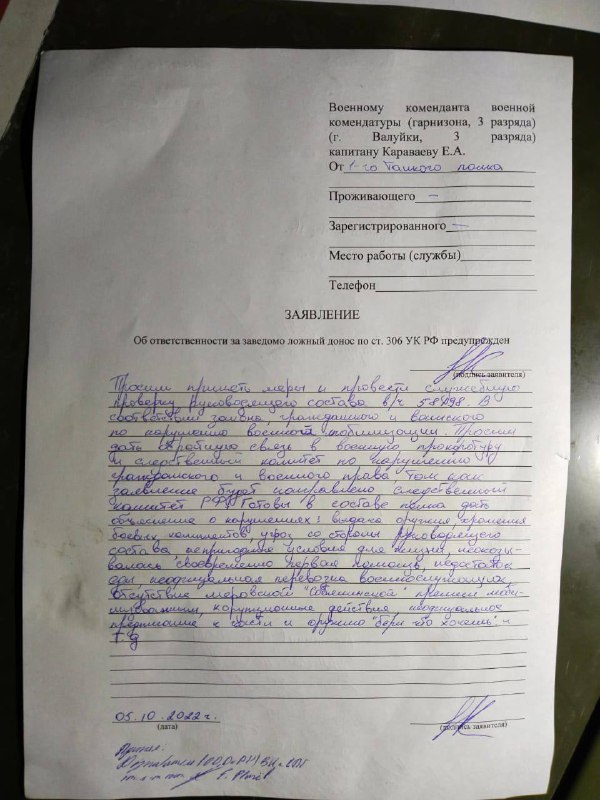 Военному коменданта военной
комендатуры (гарнизона, 3 разряда)
(г. Валуйки, 3 разряда)
капитану Караваеву Е.А.
От 1-го Танкого полка
Проживающего –
Зарегистрированного –
Место работы (службы)
Телефон
ЗАЯВЛЕНИЕ
Об ответственности за заведомо ложный донос по ст. 306 УК РФ предупрежден
(подпись заявителя)
Просим принять меры и провести служебную
проверку Руководящего состава в/ч 58198. В
соответствии закона, гражданского и воинского
по нарушению военной мобилизации. Просим
дать обратную связь в военную прокуротуру
и следственный комитет по нарушению
гражданского и военного права, так как
заявление будет направлено следственный
комитет РФ. Готовы в составе полка дать
объяснение о нарушениях: выдача оружия, хранения
боевых комплектов, угроз со стороны руководящего
состава, непригодные условия для жизни, неоказы-
валась своевременно первая помощь, недостаток
еды, перевозка военнослужащих,
отсутствие "Собянинской" премии моби-
лизованным, корупционные действия,
предписание к части и оружию "бери что хочешь" и
т д
05.10.2022 г.
(дата)
(подпись заявителя)